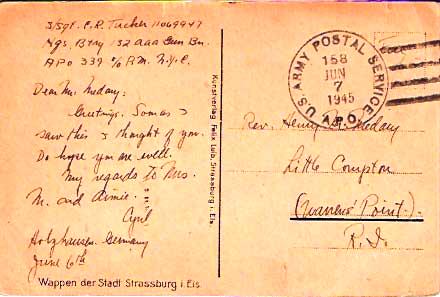 S/Sgt. C.R. Tucker 11069947
Hqs. Btry 132 aaa Gun Bn.
APO 339 c/o P.M. N.Y.C.
Dear Mr. Meday:
Greetings. Somas I
saw this & thought of you.
Do hope you are well.
My regards to Mrs.
M. and Aimée.
Cyril
Holzhausen, Germany
June 6th
Wappen der Stadt Strassburg i. Els
Kunstverlag Felix Luib, Strassburg i. Els
U.S. ARMY POSTAL SERVICE
158
JUN
7
1945
A.P.O.
Rev. Henry Meday
Little Compton
(Warrens' Point).
R.I.